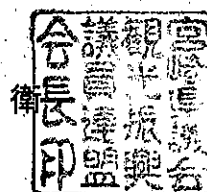 宮崎県議会
観光振興
議員連盟
会長印
衛